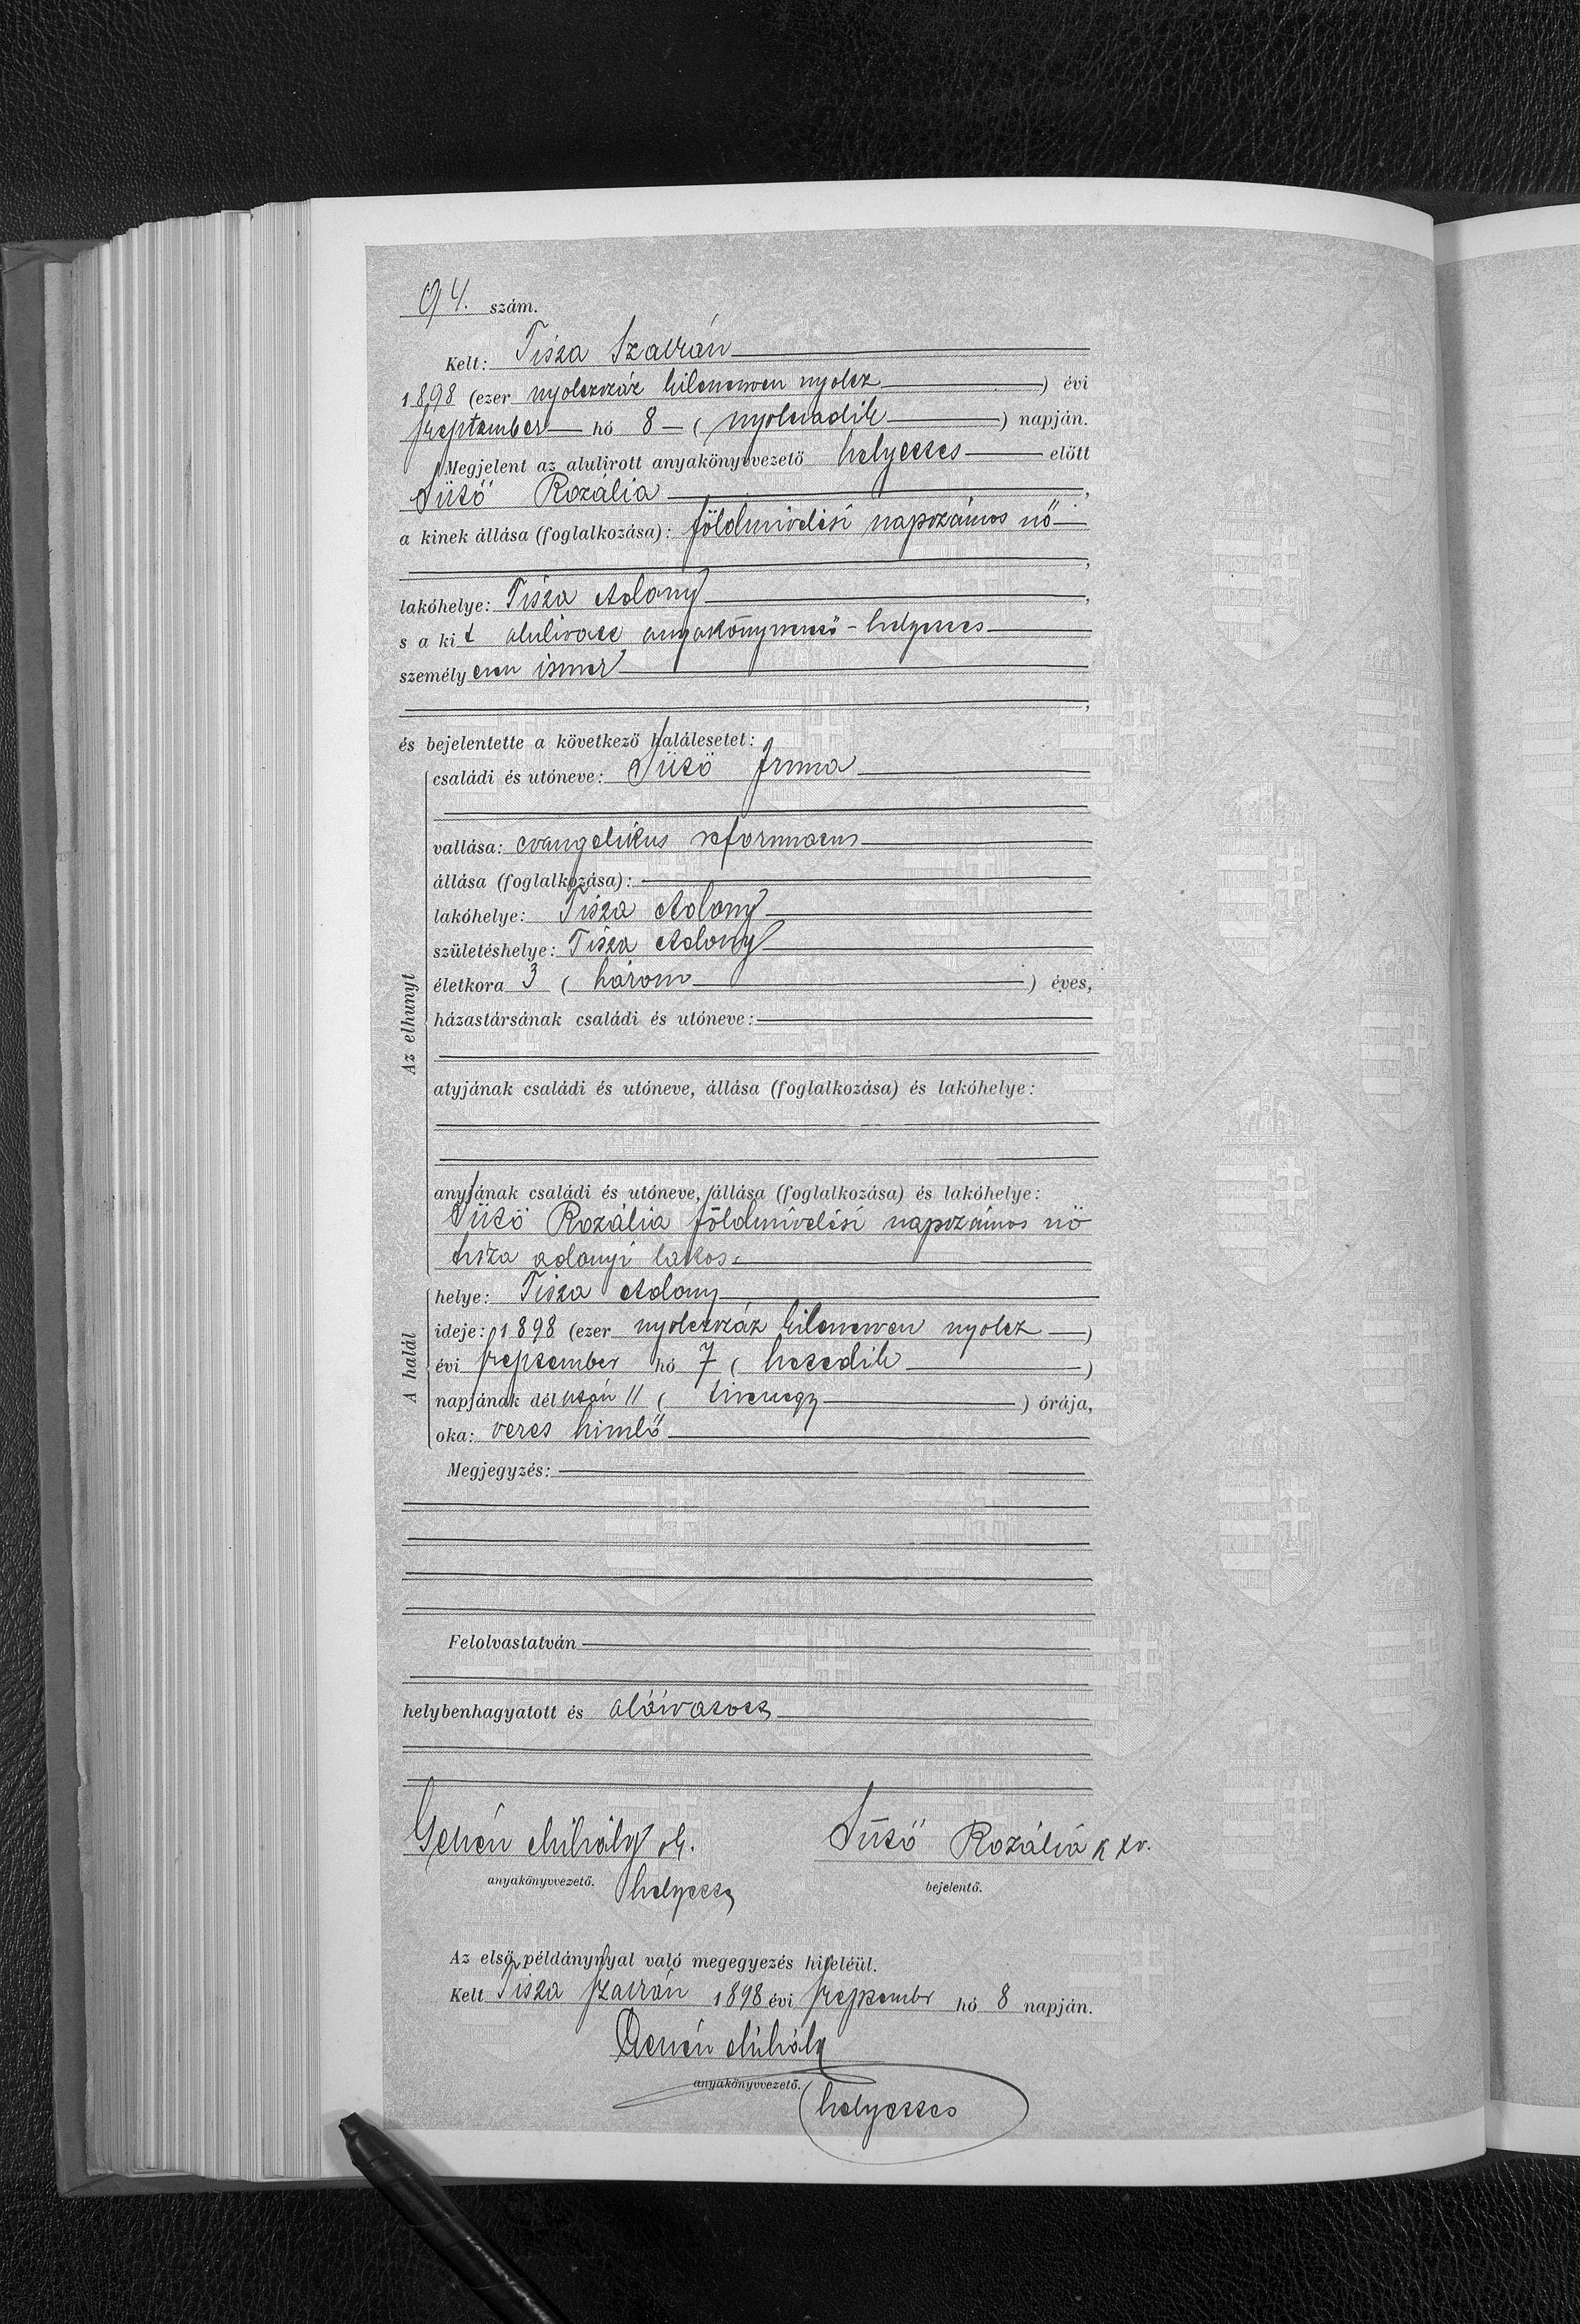 94. szám.
Kelt: Tisza Szalván
1898 (ezer nyolczszáz kilenczven nyolcz) évi
szeptember hó 8 (nyolczadik) napján.
Megjelent az alulirott anyakönyvvezető helyettes előtt
Sütő Rozália,
a kinek állása (foglalkozása): földmivelési napszámos nő
,
lakóhelye: Tisza Adony,
s a kit alulirott anyakönyvvezető-helyettes
személyesen ismer
,
és bejelentette a következő halálesetet:
Az elhunyt
családi és utóneve: Sütő Irma
vallása: evangelikus reformatus
állása (foglalkozása):
lakóhelye: Tisza Adony
születéshelye: Tisza Adony
életkora 3 (három) éves,
házastársának családi és utóneve:
atyjának családi és utóneve, állása (foglalkozása) és lakóhelye:
anyjának családi és utóneve, állása (foglalkozása) és lakóhelye:
Sütő Rozália földmivelési napszámos nő
tisza adonyi lakos
A halál
helye: Tisza Adony
ideje: 1898 (ezer nyolczszáz kilenczven nyolcz)
évi szeptember hó 7 (hetedik)
napjának dél után 11 (tizenegy) órája,
oka: veres himlő
Megjegyzés:
Felolvastatván
helybenhagyatott és aláiratott
Mihály sk. Sütő Rozália
anyakönyvvezető. helyettes bejelentő.
Az első példánynyal való megegyezés hiteléül.
Kelt Tisza Szalván 1898 évi szeptember hó 8 napján.
Mihály
anyakönyvvezető.
helyettes